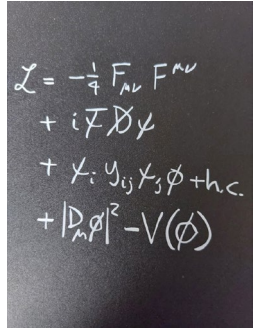 ℒ = -¼ F_μν F^μν
+ i ψ̄ D̸ ψ
+ ψ_i y_ij ψ_j φ + h.c.
+ |D_μ φ|² - V(φ)